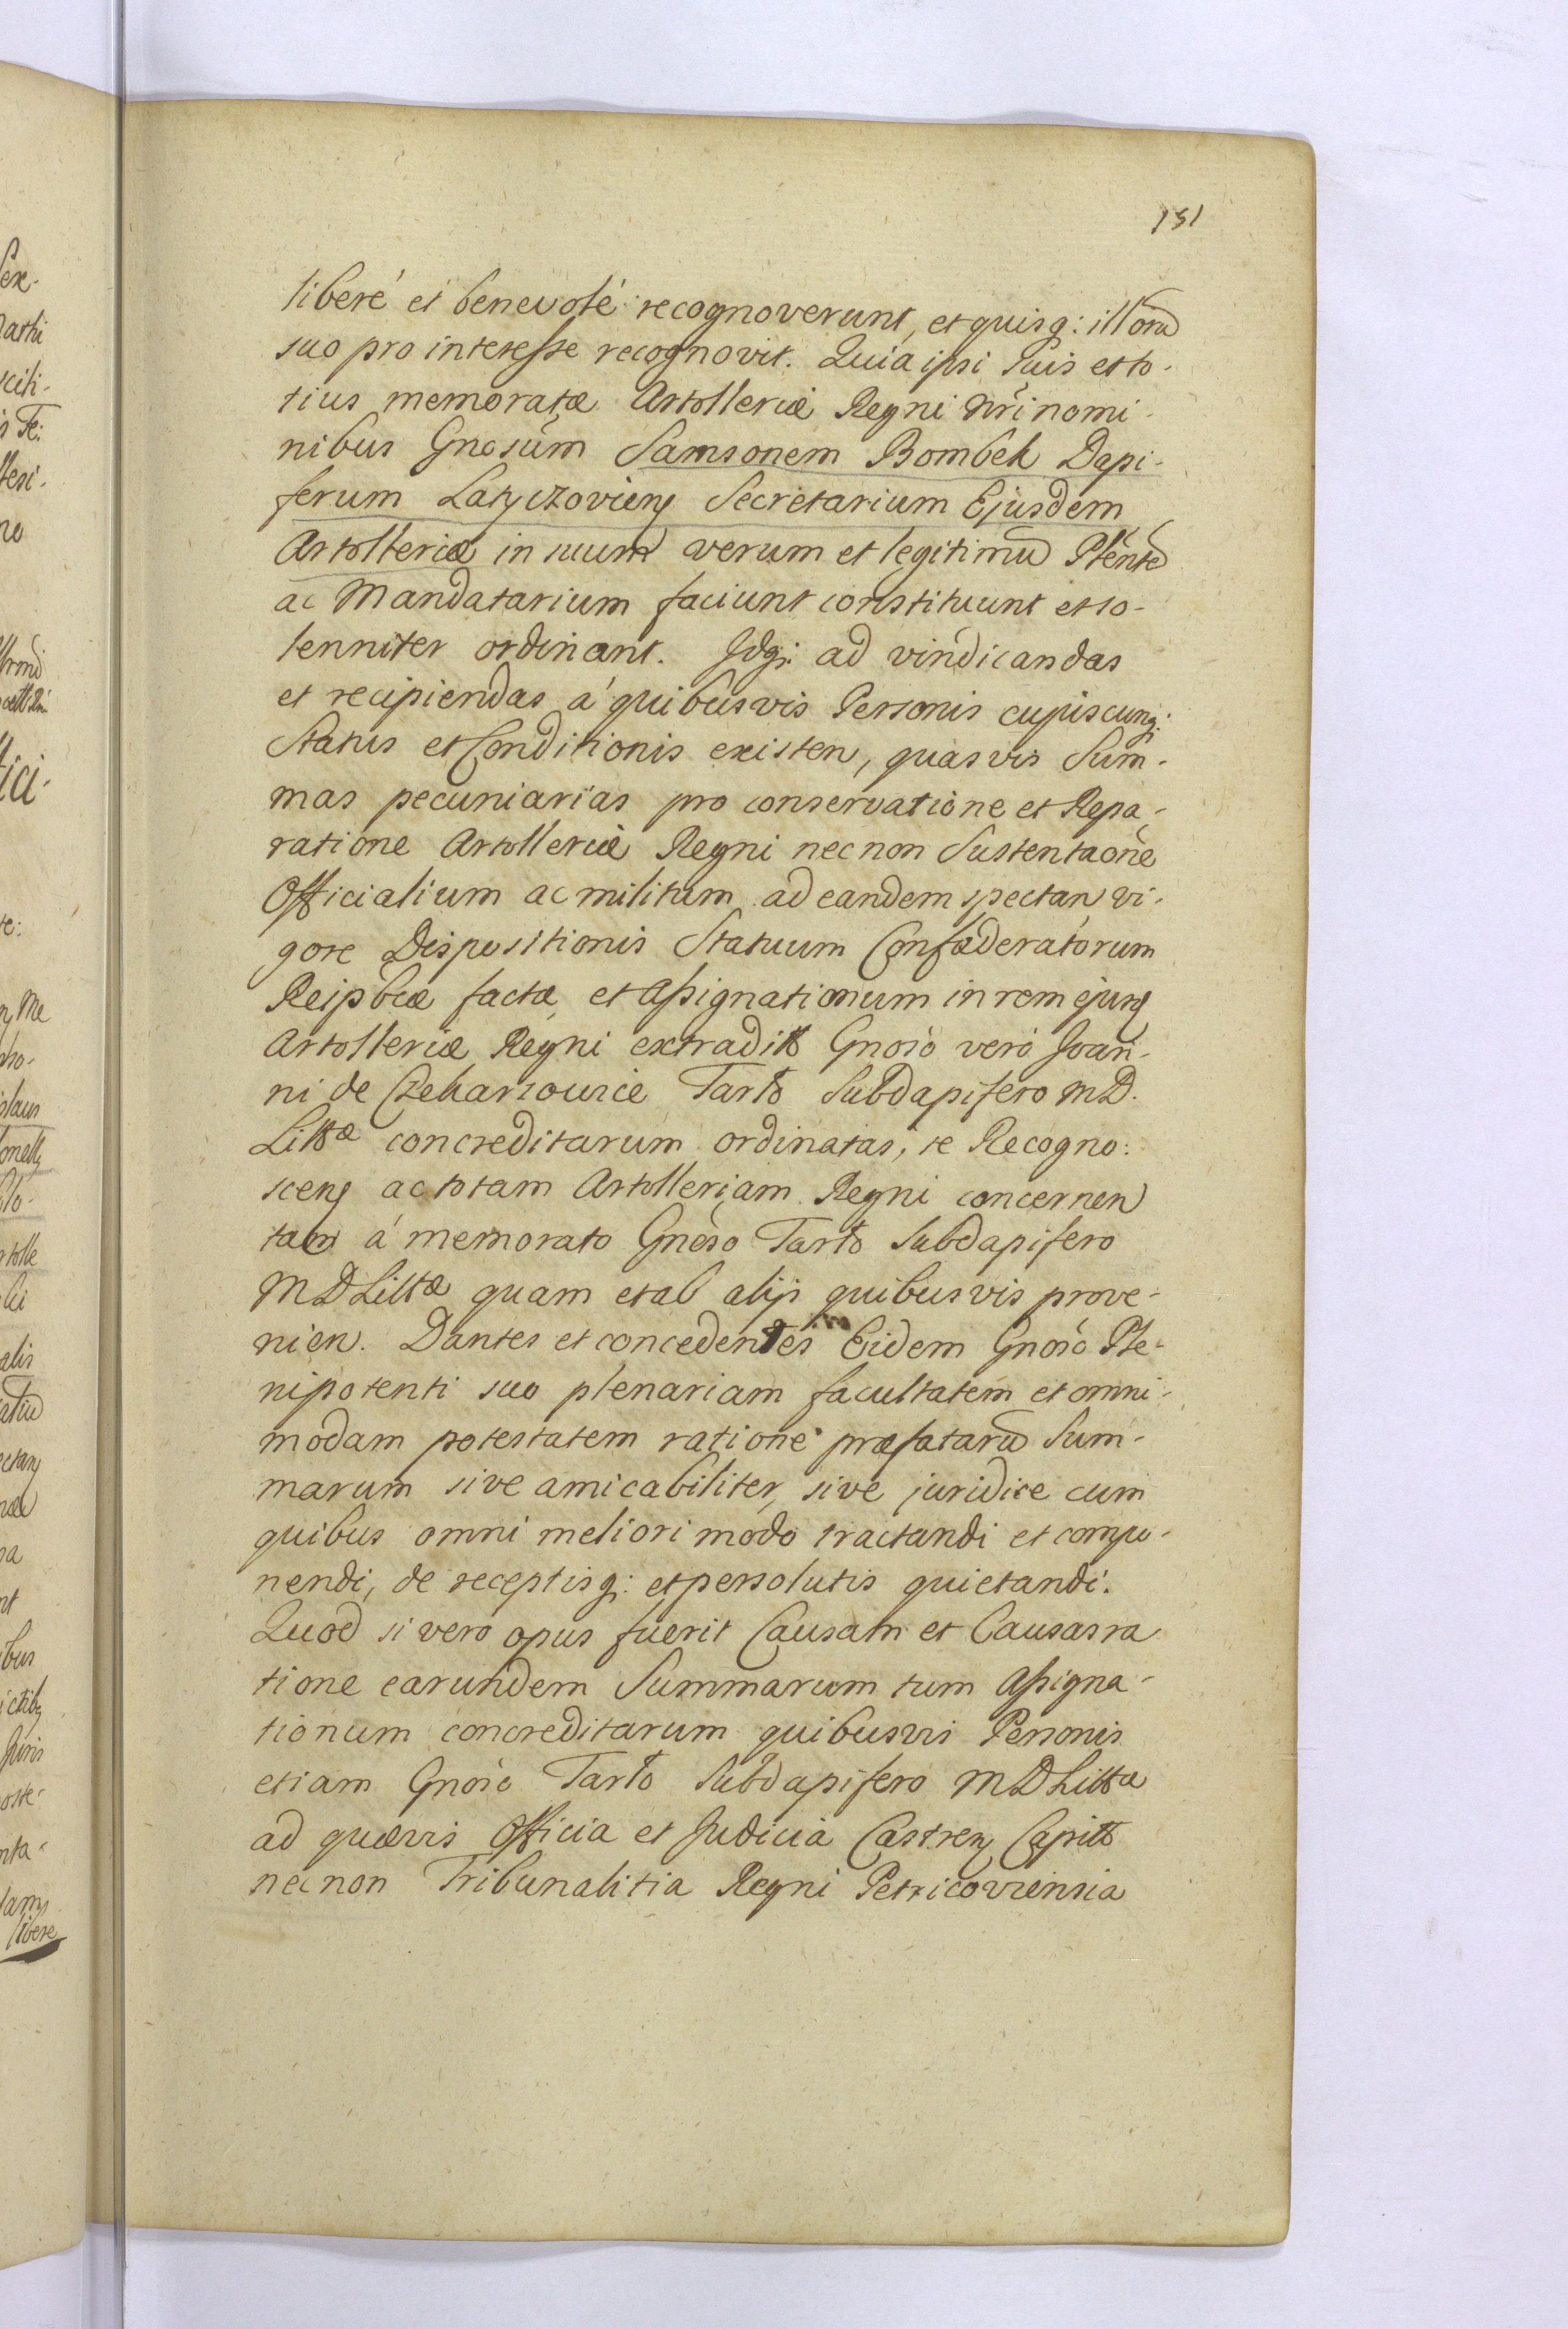 151
liberé et benevolé recognoverunt, et quisq: illorū
suo pro interesse recognovit. Quia ipsi suis et to-
tius memoratæ Artolleriæ Regni Nrī nomi-
nibus Gnosum Samsonem Bombek Dapi-
ferum Latyczovien Secretarium Ejusdem
Artolleriæ in suum verum et legitimū Plēntē
ac Mandatarium faciunt constituunt et so-
lenniter ordinant. Idq; ad vindicandas
et recipiendas á quibusvis Personis cujuscunq;
Status et Conditionis existen, quasvis Sum-
mas pecuniarias pro conservatione et Repa-
ratione Artolleriæ Regni necnon Sustentaōne
Officialium ac militum ad eandem spectan, vi-
gore Dispositionis Statuum Confæderatorum
Reipbcæ factæ, et Assignationum in rem ejusd
Artolleriæ Regni extradit Gnoso vero Joan-
ni de Czekarzowice Tarło Subdapifero M.D.
Littæ concreditarum ordinatas, se Recogno:
scen ac totam Artolleriam Regni concernen
tam á memorato Gnoso Tarło Subdapifero
M D Littæ quam et ab alijs quibusvis prove-
nien. Dantes et concedentes Eidem Gnoso Ple-
nipotenti suo plenariam facultatem et omni-
modam potestatem ratione præfatarū Sum-
marum sive amicabiliter, sive juridice cum
quibus omni meliori modo tractandi et compo-
nendi, de receptisq: et persolutis quietandi.
Quod si vero opus fuerit Causam et Causas ra
tione earundem Summarum tum Assigna-
tionum concreditarum quibusvis Personis
etiam Gnoso Tarło Subdapifero M D Littæ
ad quævis Officia et Judicia Castren, Capitt
necnon Tribunalitia Regni Petricoviensia